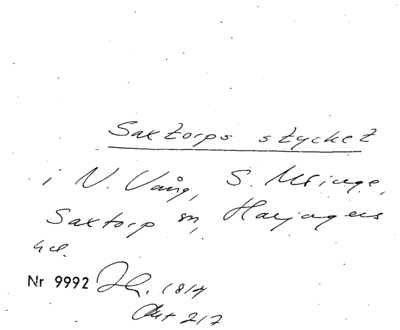 Saxtorps stycket
i N. Vång, S. Möinge,
Saxtorp sn, Harjagers
hd.
Nr 9992 1814
Akt 217